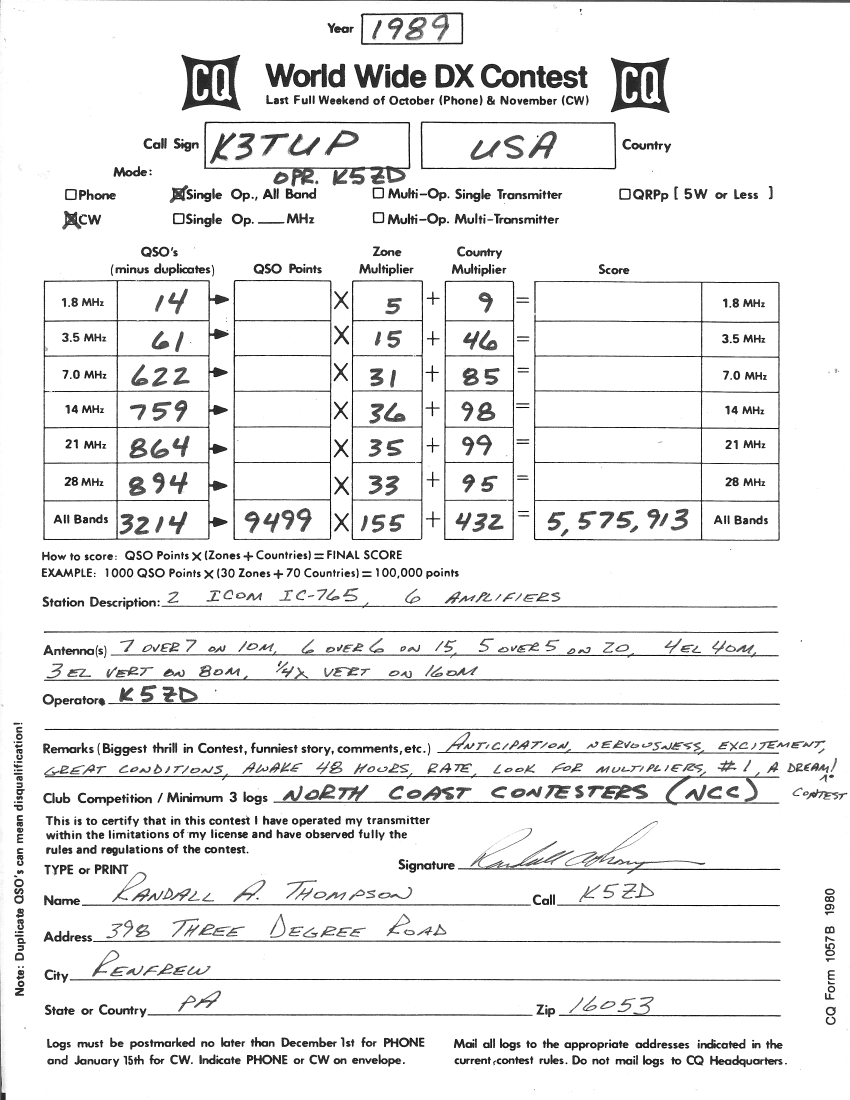 Year 1989
CQ World Wide DX Contest CQ
Last Full Weekend of October (Phone) & November (CW)
Call Sign K3TUP USA Country
Mode: OPR. K5ZD
Phone Single Op., All Band Multi-Op. Single Transmitter QRPp [ 5W or Less ]
CW Single Op. ____ MHz Multi-Op. Multi-Transmitter
QSO's Zone Country
(minus duplicates) QSO Points Multiplier Multiplier Score
1.8 MHz 14 X 5 + 9 = 1.8 MHz
3.5 MHz 61 X 15 + 46 = 3.5 MHz
7.0 MHz 622 X 31 + 85 = 7.0 MHz
14 MHz 759 X 36 + 98 = 14 MHz
21 MHz 864 X 35 + 99 = 21 MHz
28 MHz 894 X 33 + 95 = 28 MHz
All Bands 3214 9499 X 155 + 432 = 5,575,913 All Bands
How to score: QSO Points X (Zones + Countries) = FINAL SCORE
EXAMPLE: 1000 QSO Points X (30 Zones + 70 Countries) = 100,000 points
Station Description: 2 ICOM IC-765, 6 AMPLIFIERS
Antenna(s) 7 OVER 7 ON 10M, 6 OVER 6 ON 15, 5 OVER 5 ON 20, 4EL 40M,
3 EL VERT ON 80M, 1/4λ VERT ON 160M
Operators K5ZD
Remarks (Biggest thrill in Contest, funniest story, comments, etc.) ANTICIPATION, NERVOUSNESS, EXCITEMENT,
GREAT CONDITIONS, AWAKE 48 HOURS, RATE, LOOK FOR MULTIPLIERS, #1, A DREAM!
Club Competition / Minimum 3 logs NORTH COAST CONTESTERS (NCC) CONTEST
This is to certify that in this contest I have operated my transmitter
within the limitations of my license and have observed fully the
rules and regulations of the contest.
TYPE or PRINT Signature Randall A Thompson
Name RANDALL A. THOMPSON Call K5ZD
Address 398 THREE DEGREE ROAD
City RENFREW
State or Country PA Zip 16053
Logs must be postmarked no later than December 1st for PHONE
and January 15th for CW. Indicate PHONE or CW on envelope.
Mail all logs to the appropriate addresses indicated in the
current contest rules. Do not mail logs to CQ Headquarters.
Note: Duplicate QSO's can mean disqualification!
CQ Form 1057B 1980